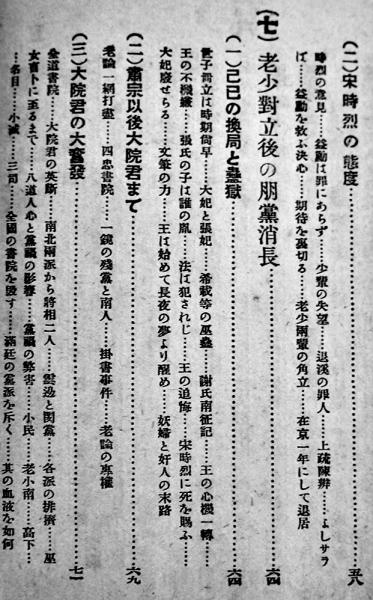 (二)宋時烈の態度……五八
時烈の意見……益勳は罪にあらず……少輩の失望……退溪の罪人……上疏陳辨……よしサラ
ば……益勳を救ふ決心……期待を裏切る……老少兩輩の角立……在京一年にして退居
(七)老少對立後の朋黨消長……六四
(一)己巳の換局と蠱獄……六四
世子冊立は時期尚早……大妃と張妃……希載等の巫蠱……謝氏南征記……王の心機一轉……
王の不機嫌……張氏の子は誰の胤……法は犯されじ……王の追悔……宋時烈に死を賜ふ……
大妃廢せらる……文筆の力……王は始めて長夜の夢より醒め……妖婦と奸人の末路
(二)肅宗以後大院君まで……六九
老論一網打盡……四忠書院……一鏡の殘黨と南人……掛書事件……老論の專權
(三)大院君の大奮發……七一
全道書院……大院君の英斷……南北兩派から將相二人……雲邊と閔黨……各派の排擠……巫
女盲卜に至るまで……八道人心と黨議の影響……黨議の弊害……小民……老小南……高下
……名目……小滅……三司……全國の書院を毀す……滿廷の黨派を斥く……其の血液を如何